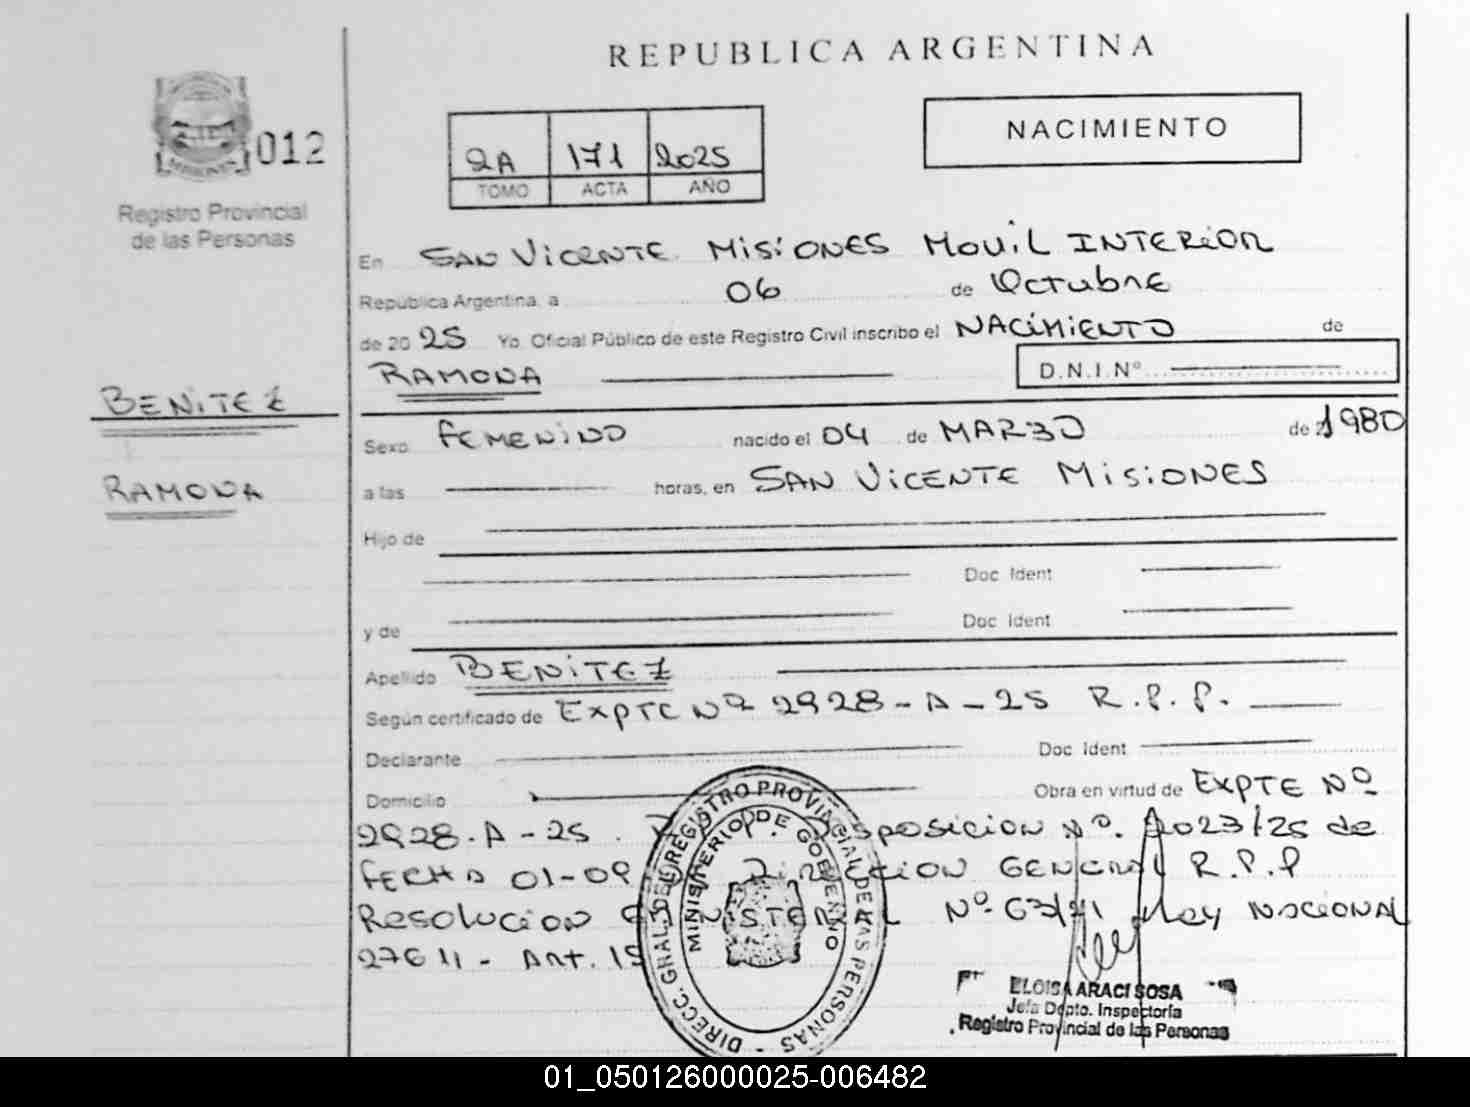 REPUBLICA ARGENTINA
012
Registro Provincial
de las Personas
2A 171 2025
TOMO ACTA AÑO
NACIMIENTO
En SAN VICENTE MISIONES MOVIL INTERIOR
República Argentina, a 06 de Octubre
de 20 25 Yo, Oficial Público de este Registro Civil inscribo el NACIMIENTO de
RAMONA
D.N.I.Nº
BENITEZ
RAMONA
Sexo FEMENINO nacido el 04 de MARZO de 1980
a las horas, en SAN VICENTE MISIONES
Hijo de
Doc. Ident
y de Doc. Ident
Apellido BENITEZ
Según certificado de EXPTE Nº 2928-A-25 R.P.P.
Declarante Doc. Ident
Domicilio Obra en virtud de EXPTE Nº
2928-A-25. Disposicion Nº. 2023/25 de
FECHA 01-09 Direccion GENERAL R.P.P
Resolucion Nº 63/41 Ley NACIONAL
27611 - Art. 15
DIRECC. GRAL. DEL REGISTRO PROVINCIAL DE LAS PERSONAS
MINISTERIO DE GOBIERNO
ELOISA ARACI SOSA
Jefa Dpto. Inspectoría
Registro Provincial de las Personas
01_050126000025-006482